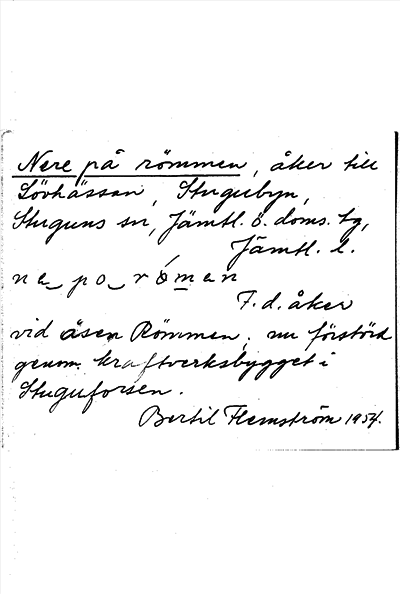 Nere på römmen, åker till
Lövhässan, Stugubyn,
Stuguns sn, Jämtl. ö. doms. tg,
Jämtl. l.
ne po römen
F. d. åker
vid åsen Römmen, nu förstörd
genom kraftverksbygget i
Stuguforsen.
Bertil Flemström 1954.